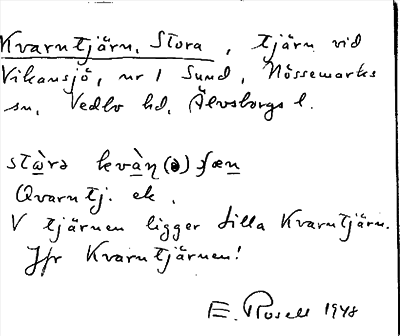 Kvarntjärn, Stora, tjärn vid
Vikansjö, nr 1 Sund, Nössemarks
sn, Vedbo hd, Älvsborgs l.
stὼrə kvὰɳ(ə)ʃæɳ
Qvarntj. ek.
V tjärnen ligger Lilla Kvarntjärn.
Jfr Kvarntjärnen!
E. Rosell 1948